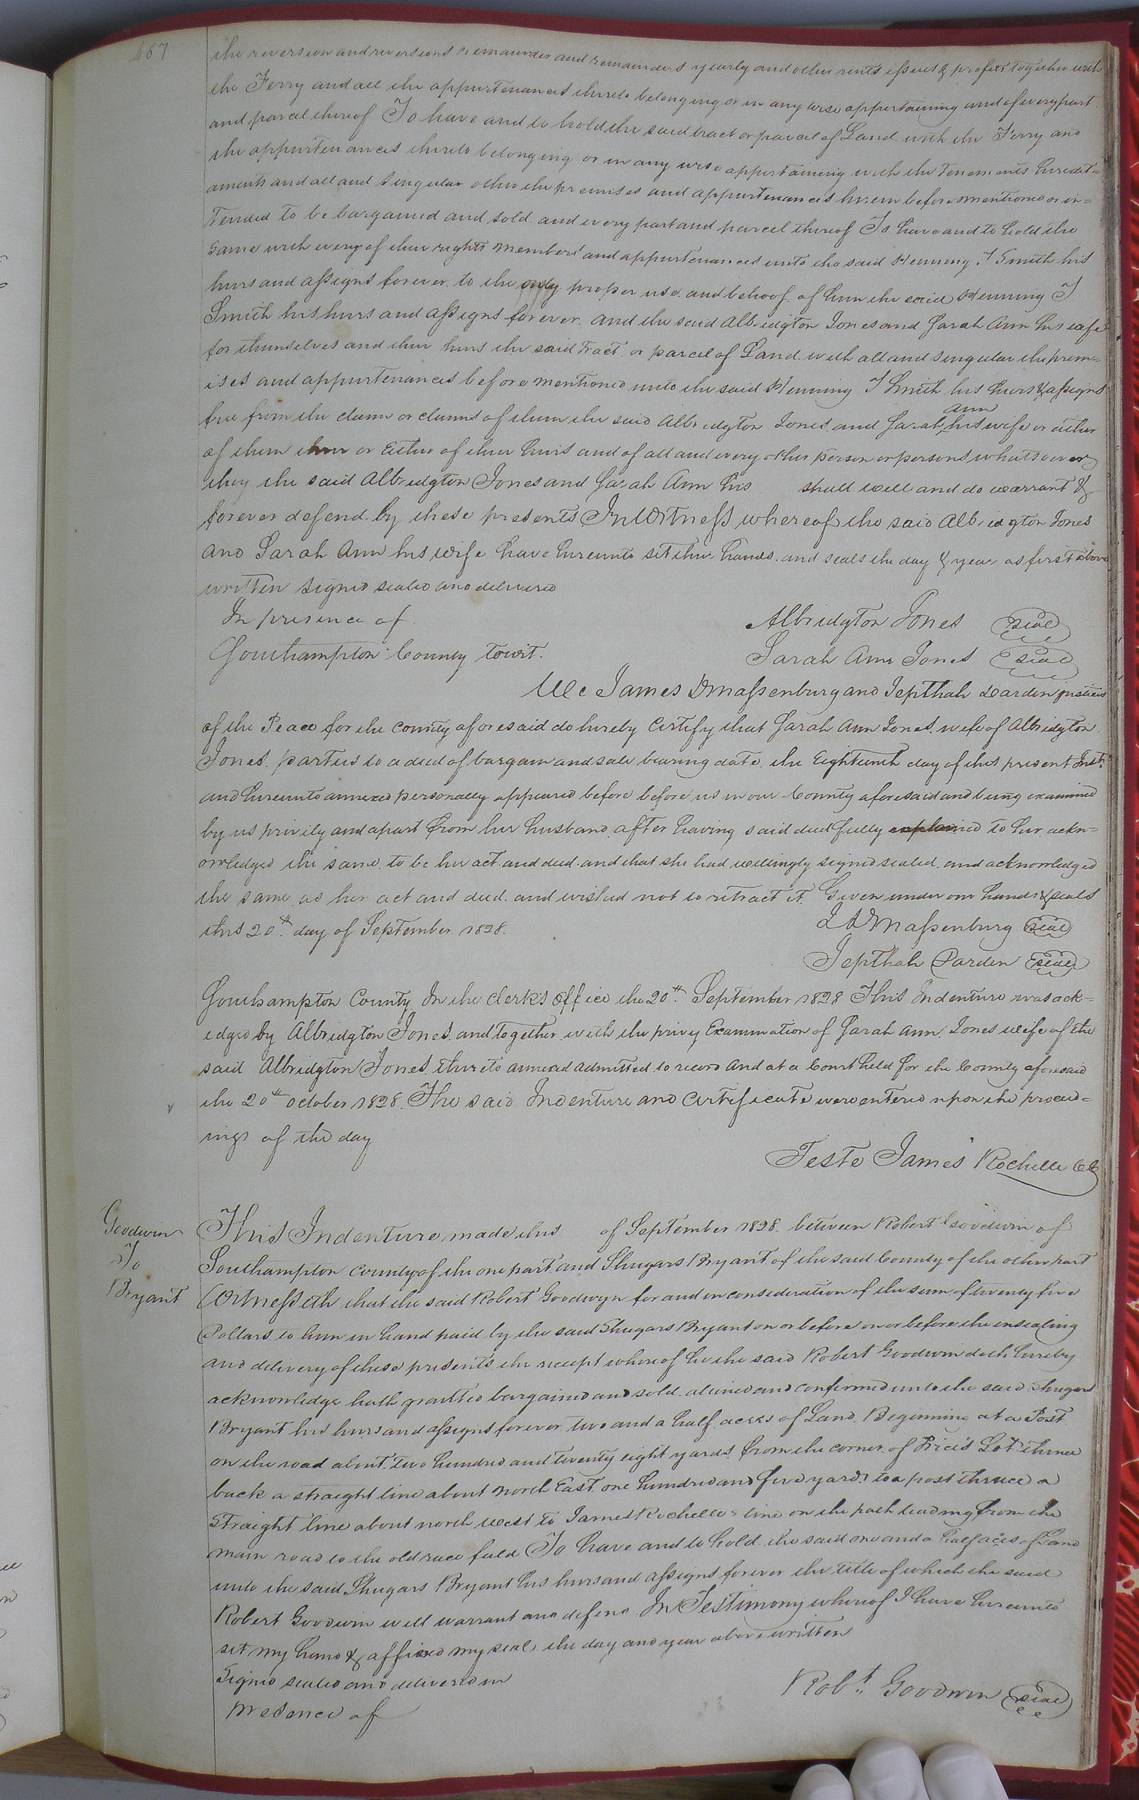 467
the reversion and reversions remainder and remainders yearly and other rents issues & profits together with
the Ferry and all the appurtenances thereto belonging or in any wise appertaining and of every part
and parcel thereof To have and to hold the said tract or parcel of Land with the Ferry and
the appurtenances thereto belonging or in any wise appertaining with the tenements heredit=
aments and all and singular other the premises and appurtenances herein before mentioned or in=
tended to be bargained and sold and every part and parcel thereof To have and to hold the
same with every of their rights members and appurtenances unto the said Henning T Smith his
heirs and assigns forever to the only proper use and behoof of him the said Henning T
Smith his heirs and assigns forever. and the said Albridgton Jones and Sarah Ann his wife
for themselves and their heirs the said Tract or parcel of Land with all and singular the prem=
ises and appurtenances before mentioned unto the said Henning T Smith his heirs & assigns
free from the claim or claims of them the said Albridgton Jones and Sarah Ann his wife or either
of them or Either of their heirs and of all and every other person or persons whatsoever
they the said Albridgton Jones and Sarah Ann his shall well and do warrant &
forever defend by these presents In Witness whereof the said Albridgton Jones
and Sarah Ann his wife have hereunto set their hands and seals the day & year as first above
written signed sealed and delivered
In presence of Albridgton Jones seal
Southampton County towit. Sarah Ann Jones seal
We James D Massenburg and Jepthah Darden justices
of the Peace for the county aforesaid do hereby Certify that Sarah Ann Jones wife of Albridgton
Jones parties to a deed of bargain and sale bearing date the Eighteenth day of this present Inst.
and hereunto annexed personally appeared before before us in our County aforesaid and being examined
by us privily and apart from her husband after having said deed fully explained to her ackn=
owledged the same to be her act and deed and that she had willingly signed sealed and acknowledged
the same as her act and deed and wished not to retract it Given under our hands & seals
this 20th day of September 1828. J D Massenburg seal
Jepthah Darden seal
Southampton County In the Clerk's Office the 20th September 1828 This Indenture was ack=
edged by Albridgton Jones and together with the privy Examination of Sarah Ann Jones wife of the
said Albridgton Jones thereto annexed admitted to record And at a Court held for the County aforesaid
the 20th October 1828. The said Indenture and Certificate were entered upon the proceed=
ings of the day
Teste James Rochelle CC
Goodwin
To
Bryant
This Indenture made this of September 1828. between Robert Goodwin of
Southampton county of the one part and Shugars Bryant of the said County of the other part
Witnesseth that the said Robert Goodwyn for and in consideration of the sum of twenty five
Dollars to him in hand paid by the said Shugars Bryant on or before on or before the ensealing
and delivery of these presents the receipt whereof he the said Robert Goodwin doth hereby
acknowledge hath granted bargained and sold aliened and confirmed unto the said Shugars
Bryant his heirs and assigns forever two and a half acres of Land Beginning at a Post
on the road about two hundred and twenty eight yards from the corner of Price's Lot thence
back a straight line about North East one hundred and five yards to a post thence a
straight line about north west to James Rochelle's line on the path leading from the
main road to the old race field To have and to hold the said one and a half acres of Land
unto the said Shugars Bryant his heirs and assigns forever the title of which the said
Robert Goodwin will warrant and defend In Testimony whereof I have hereunto
set my hand & affixed my seal the day and year above written
Signed sealed and delivered in Robt. Goodwin seal
presence of